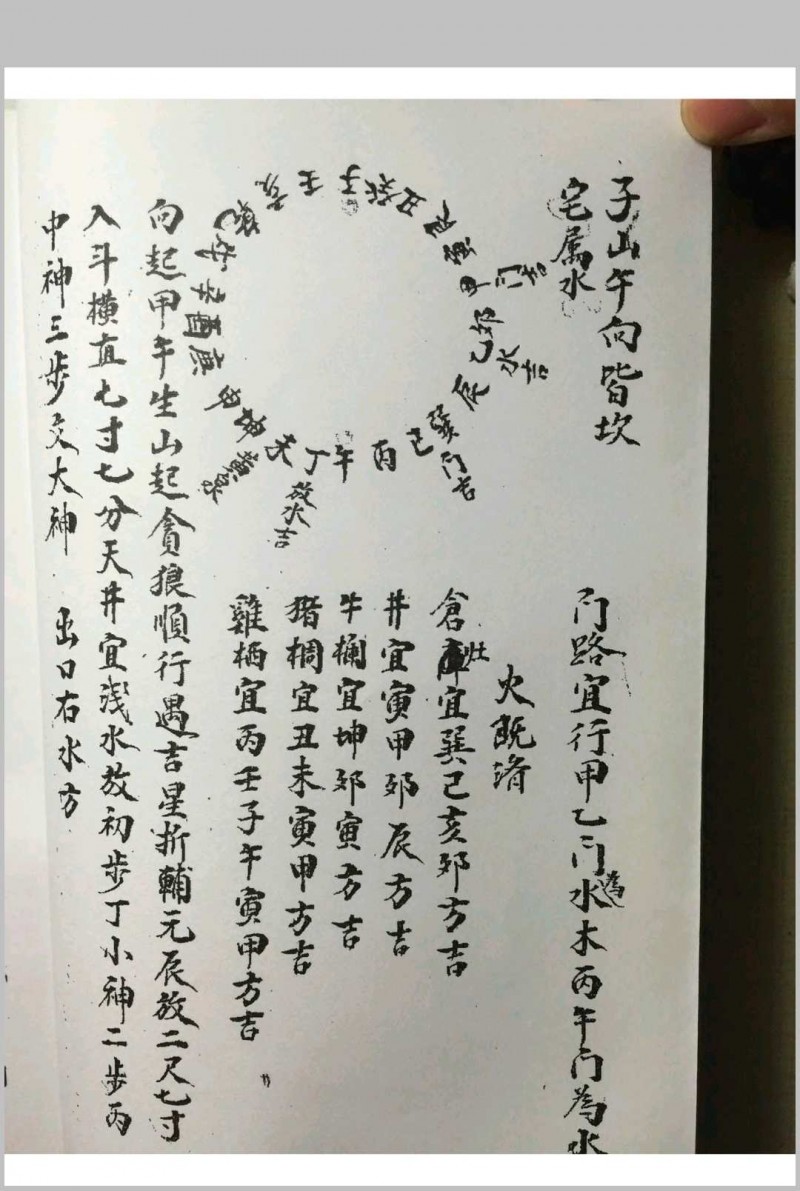 子山午向皆坎
宅属水
門路宜行甲乙門為水木丙午門為水
火既濟
倉庫灶宜巽巳亥夘方吉
井宜寅甲夘辰方吉
牛欄宜坤夘寅方吉
猪椆宜丑未寅甲方吉
雞栖宜丙壬子午寅甲方吉
壬子癸丑艮寅甲夘乙辰巽巳丙午丁未坤申庚酉辛戌乾亥
門吉
水吉
門吉
放水吉
向起甲午生山起貪狼順行遇吉星折輔元辰放二尺七寸
入斗横直七寸七分天井宜浅水放初步丁小神二步丙
中神三步交大神 出口右水方